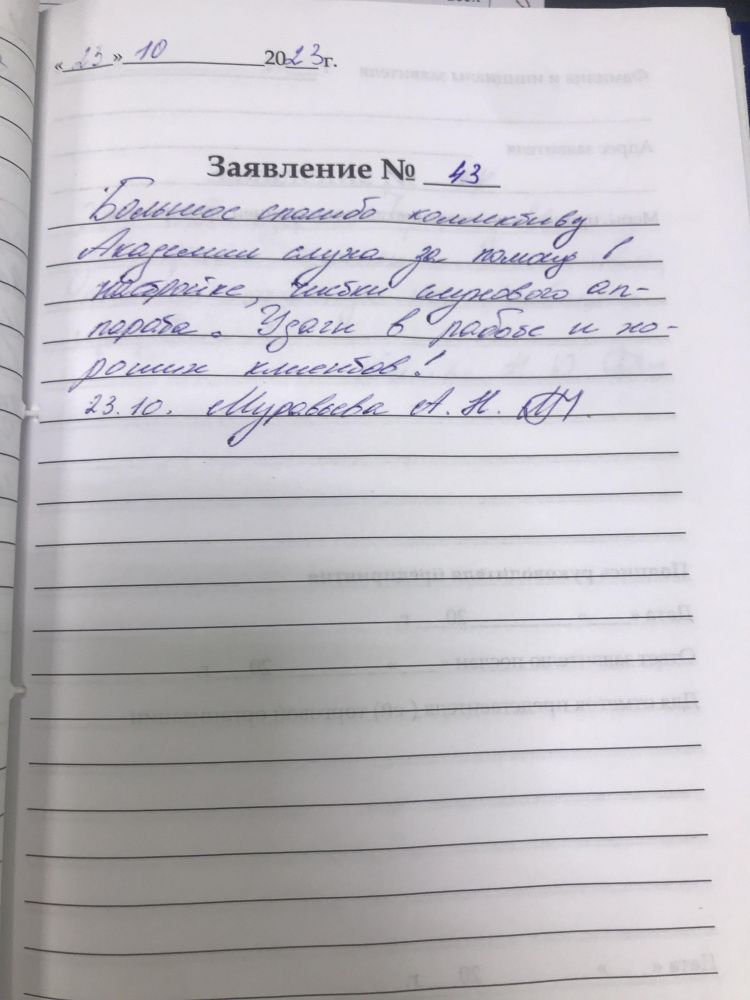 «23» 10 2023г.
Заявление № 43
Большое спасибо коллективу
Академии слуха за помощь в
настройке, чистки слухового ап-
парата. Удачи в работе и хо-
роших клиентов!
23.10. Муравьева А. Н.